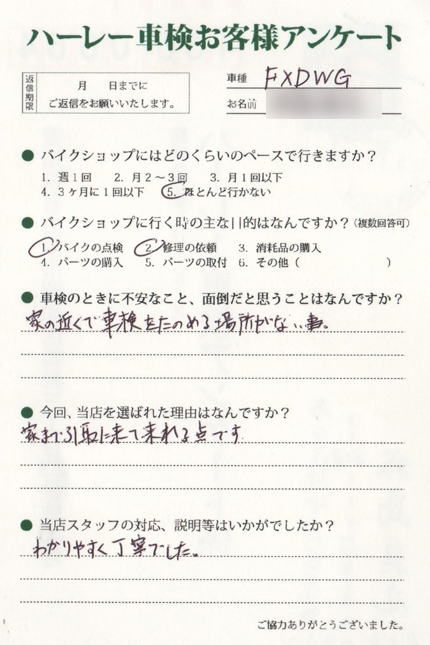 ハーレー車検お客様アンケート
返信期限
月 日までに
ご返信をお願いいたします。
車種 FXDWG
お名前
● バイクショップにはどのくらいのペースで行きますか？
1. 週1回 2. 月2〜3回 3. 月1回以下
4. 3ヶ月に1回以下 5. ほとんど行かない
● バイクショップに行く時の主な目的はなんですか？(複数回答可)
1. バイクの点検 2. 修理の依頼 3. 消耗品の購入
4. パーツの購入 5. パーツの取付 6. その他 ( )
● 車検のときに不安なこと、面倒だと思うことはなんですか？
家の近くで車検をたのめる場所がない事。
● 今回、当店を選ばれた理由はなんですか？
家まで引取に来て来れる点です
● 当店スタッフの対応、説明等はいかがでしたか？
わかりやすく丁寧でした。
ご協力ありがとうございました。